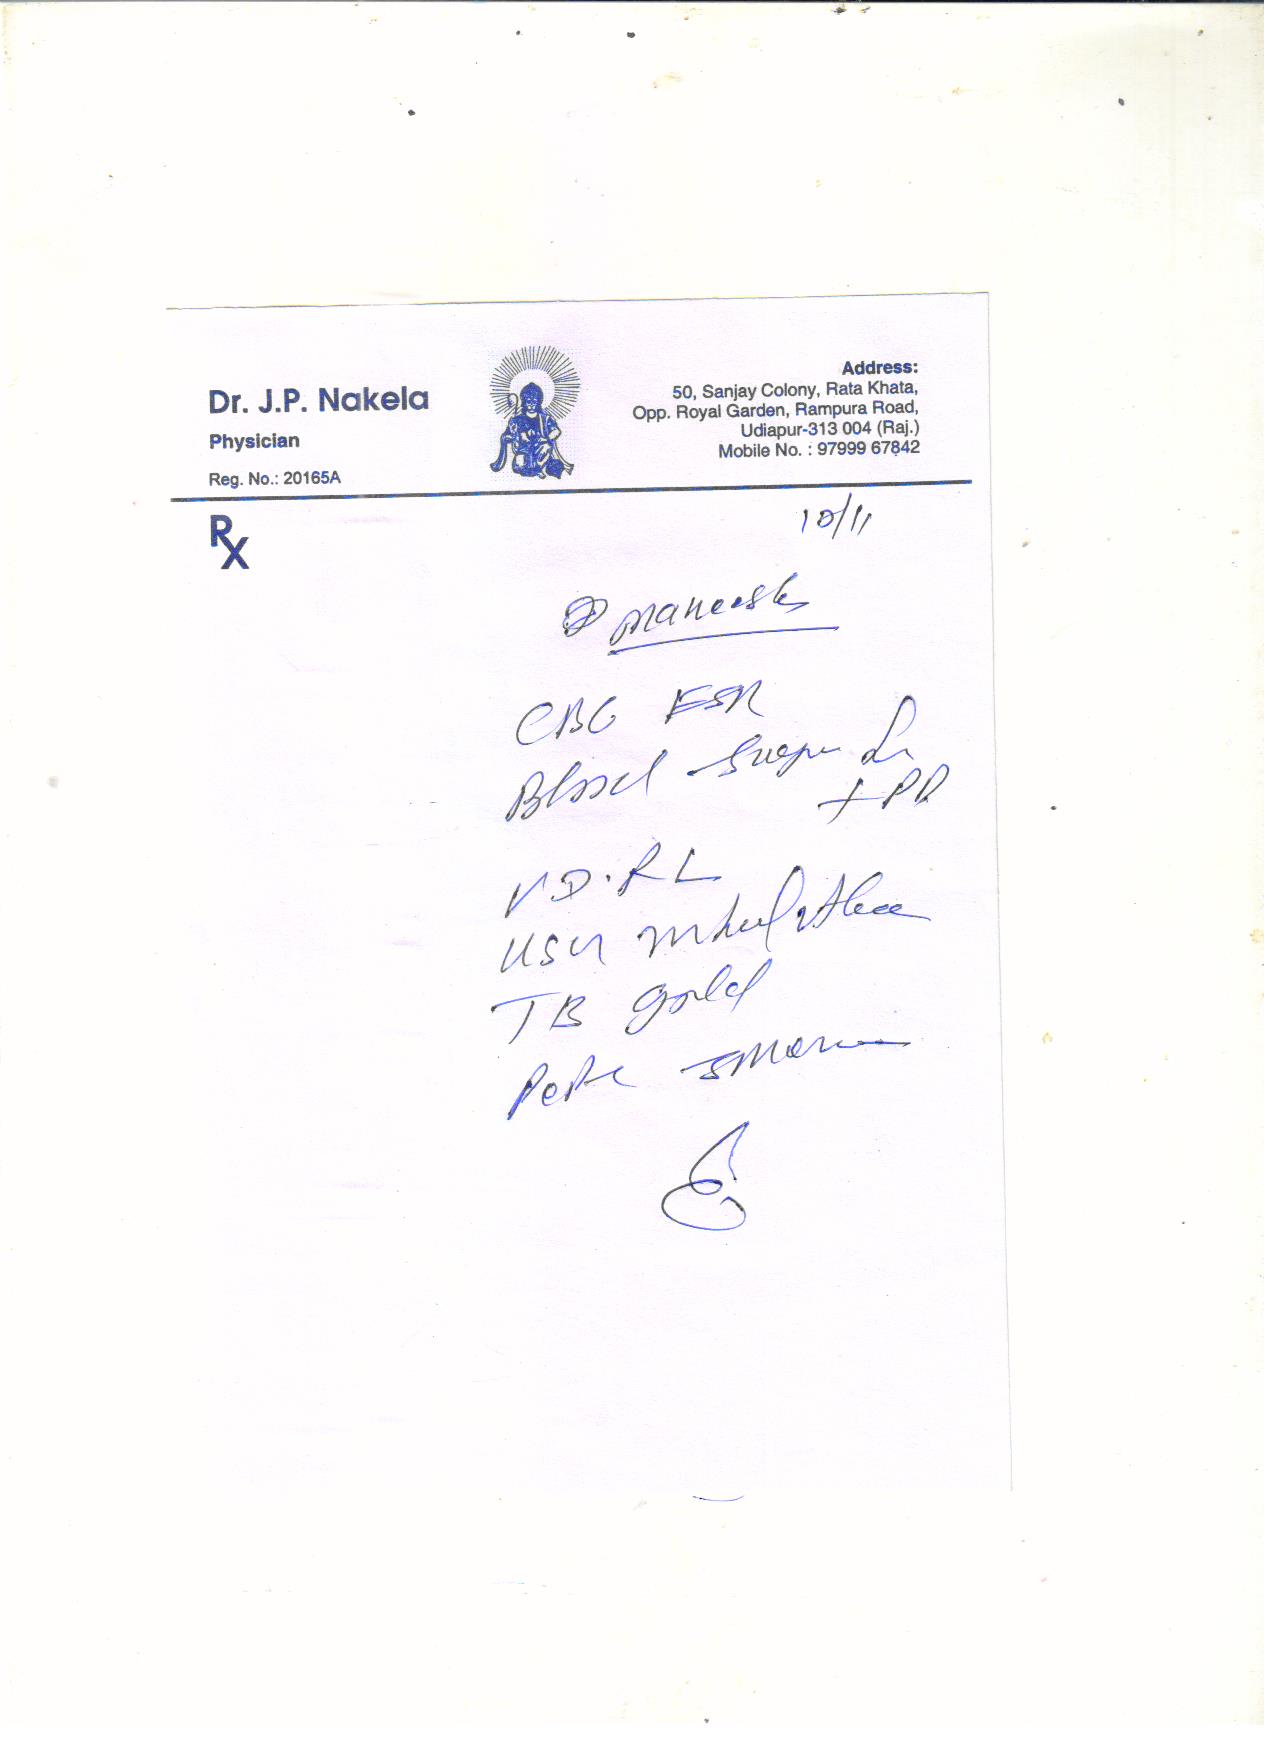 Dr. J.P. Nakela
Physician
Reg. No.: 20165A
Address:
50, Sanjay Colony, Rata Khata,
Opp. Royal Garden, Rampura Road,
Udiapur-313 004 (Raj.)
Mobile No. : 97999 67842
Rx
10/11
CBC ESR
Blood Sugar
+ PP
V.D.R.L
USG
TB Gold